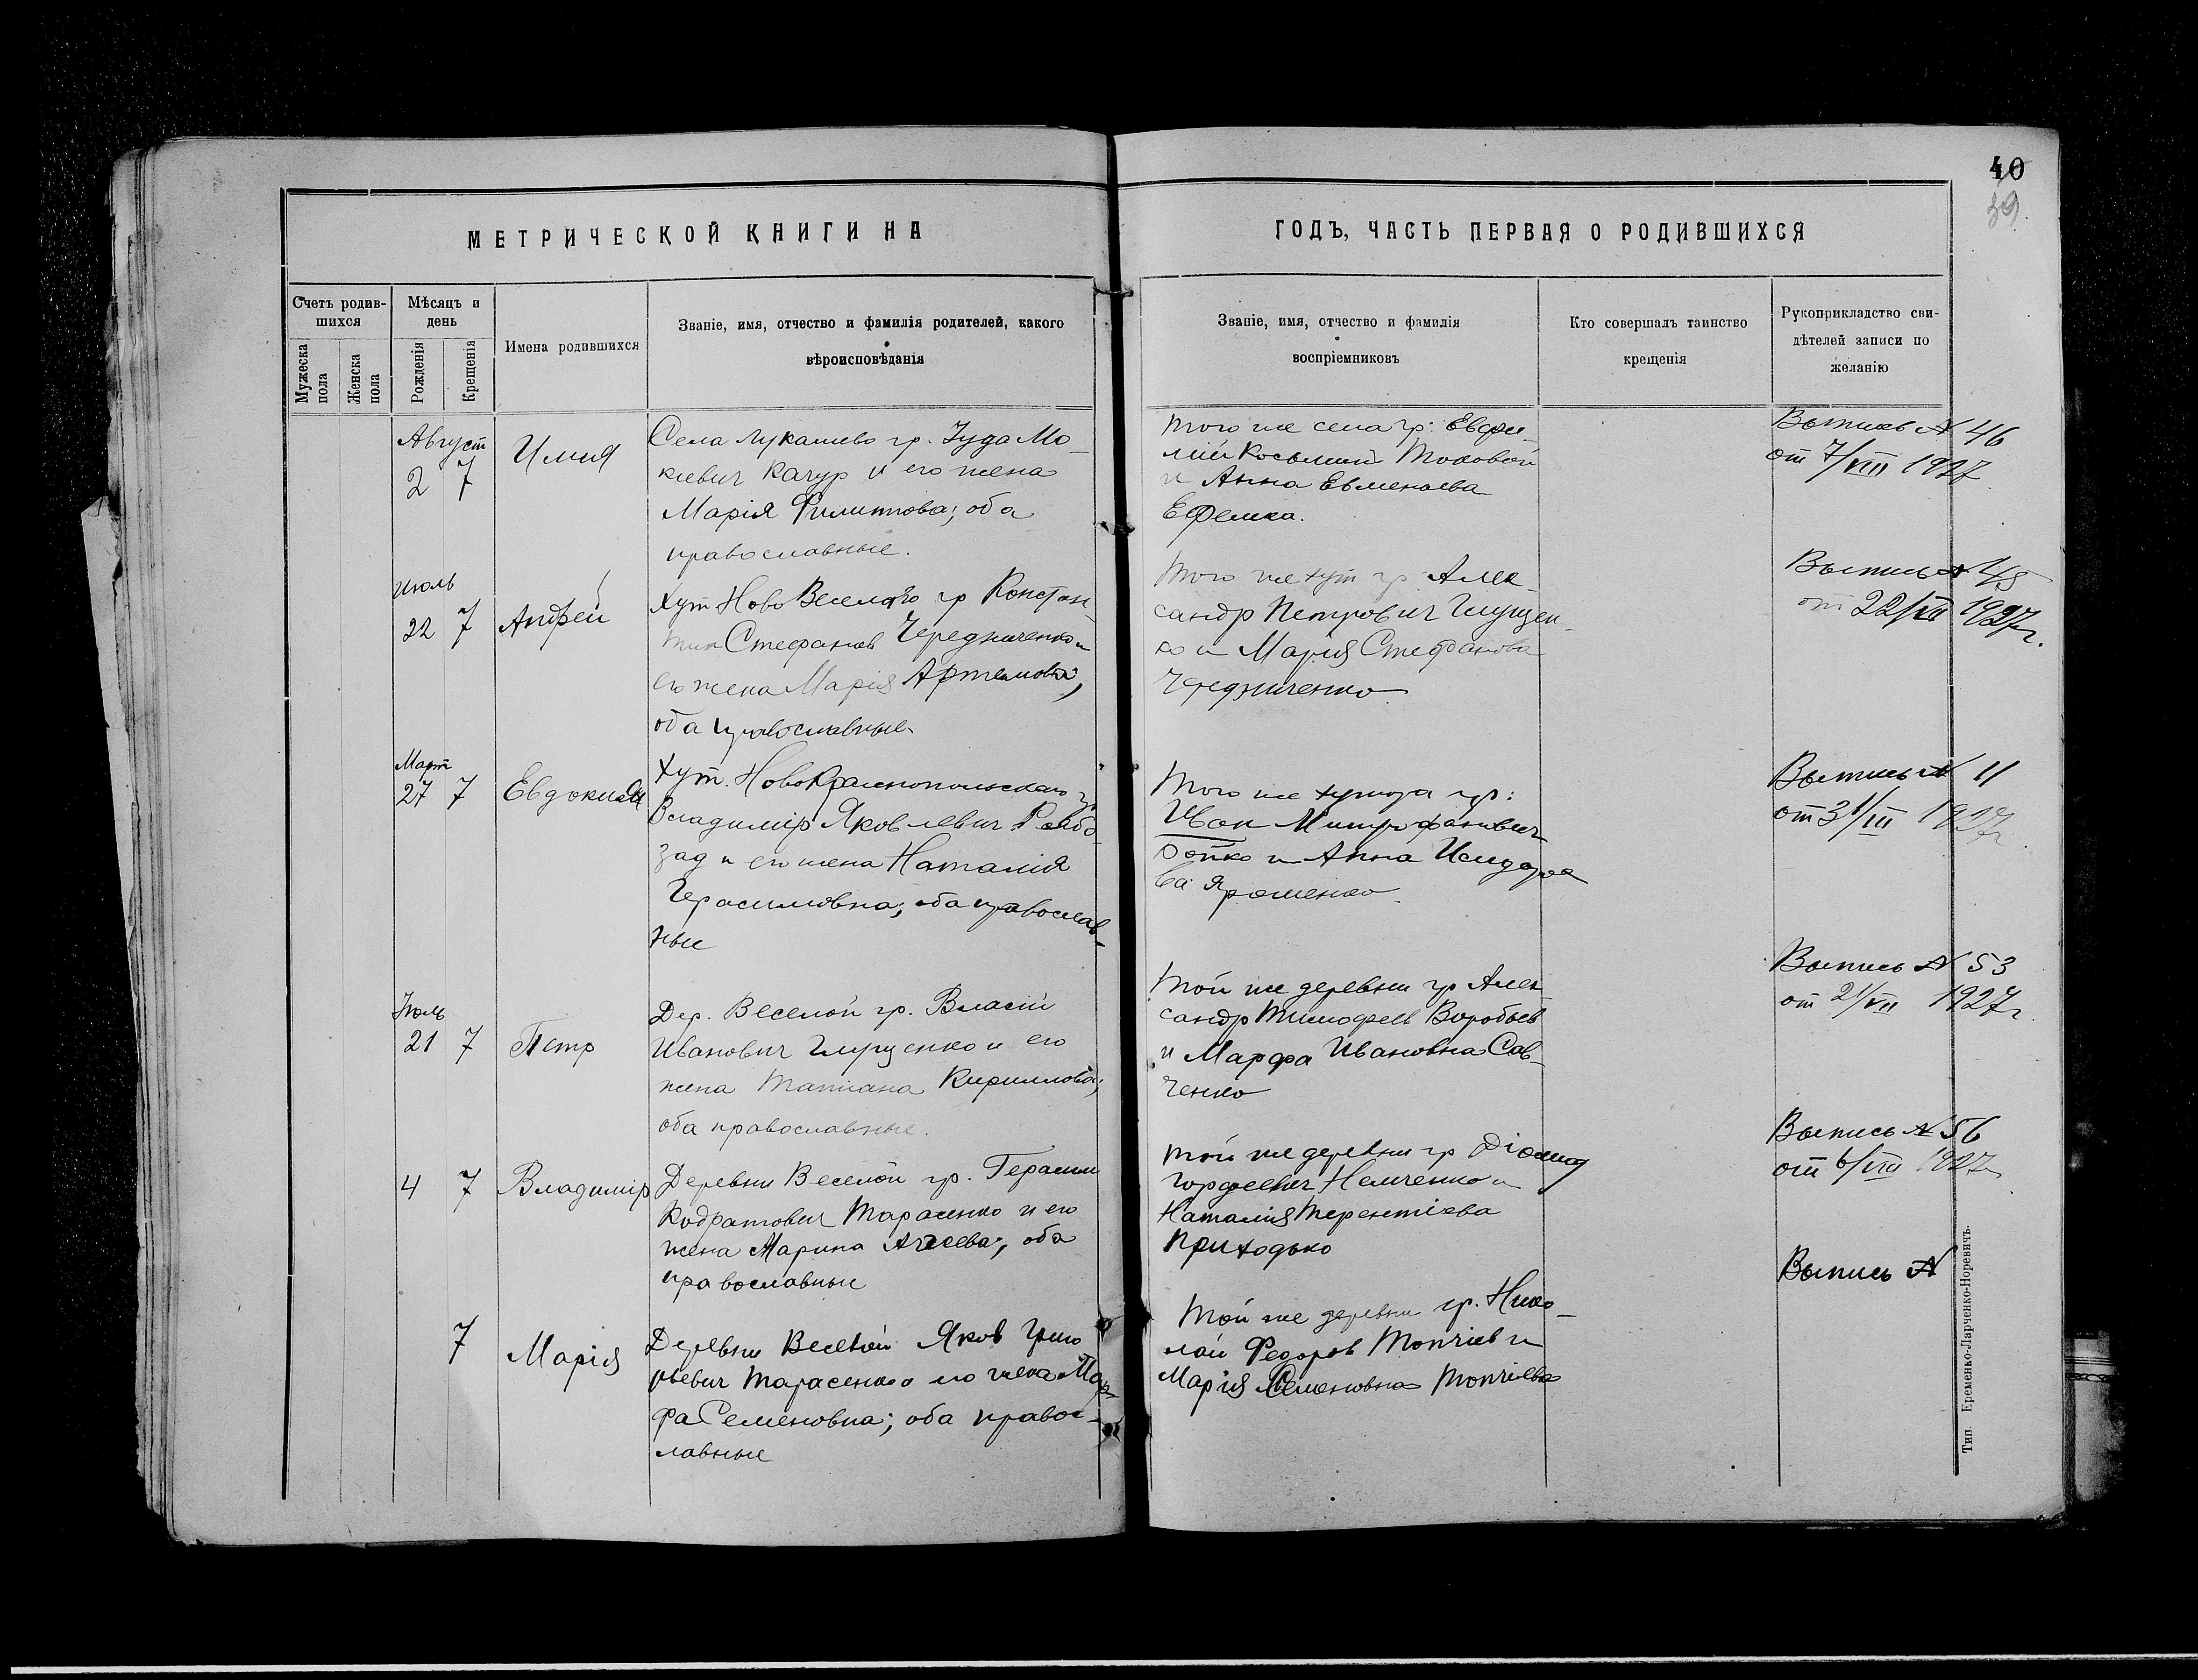 40
39
МЕТРИЧЕСКОЙ КНИГИ НА
ГОДЪ, ЧАСТЬ ПЕРВАЯ О РОДИВШИХСЯ
Счетъ родив-
шихся
Мужеска
пола
Женска
пола
Мѣсяцъ и
день
Рожденія
Крещенія
Имена родившихся
Званіе, имя, отчество и фамилія родителей, какого
вѣроисповѣданія
Званіе, имя, отчество и фамилія
воспріемниковъ
Кто совершалъ таинство
крещенія
Рукоприкладство сви-
дѣтелей записи по
желанію
Август
2 7
Села Лукашево гр. Іуда Мо-
кіевич Качур и его жена
Марія Филиппова; оба
православные.
того же села гр: Евфи-
мій Косьмин Токовой
и Анна Евменіева
Ефемка.
Выпись № 46
от 7/VIII 1927
Июль
22 7
Андрей
Хут Ново Веселого гр Констан
тин Стефанов Чередниченко и
его жена Марія Артемова;
оба православные.
того же хут гр Алек
сандр Петрович Глущен-
ко и Марія Стефанова
Чередниченко
Выпись №
от 22/VII 1927г.
Март
27 7
Евдокия
Хут. Новокраснопольского гр
Владимір Яковлевич
зад и его жена Наталія
Герасимовна; оба православ-
ные
Того же хутора гр:
Иван Митрофанович
Бойко и Анна Исидоро
ва Ярошенко
Выпись № 11
от 31/III 1927г
Іюль
21 7
Петр
Дер. Веселой гр. Власій
Иванович Глущенко и его
жена Татіана Кириллова;
оба православные.
Той же деревни гр Алек
сандр Тимофеев Воробьев
и Марфа Ивановна Сав-
ченко
Выпись № 53
от 21/VII 1927г
4 7
Владимір
Деревни Веселой гр. Герасим
Кодратович Тарасенко и его
жена Марина; оба
православные
той же деревни гр Діомид
Гордеевич Немченко и
Наталия Терентіева
Приходько
Выпись № 56
от 6/VIII 1927г
7
Марія
Деревни Веселой Яков Григо
рьевич Тарасенко и его жена Мар-
фа Семеновна; оба правос-
лавные
Той же деревни гр. Нико-
лай Федоров Топчіев и
Марія Семеновна Топчіева
Выпись №
Тип. Еременко-Ларченко-Норевичъ.